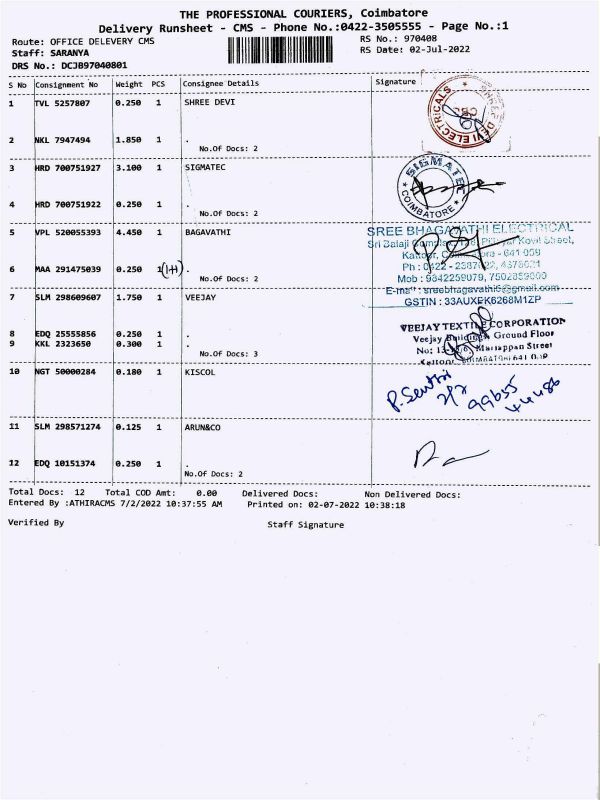 THE PROFESSIONAL COURIERS, Coimbatore
Delivery Runsheet - CMS - Phone No.:0422-3505555 - Page No.:1
Route: OFFICE DELEVERY CMS RS No.: 970408
Staff: SARANYA RS Date: 02-Jul-2022
DRS No.: DCJB97040801
S No Consignment No Weight PCS Consignee Details Signature
1 TVL 5257807 0.250 1 SHREE DEVI
SHREE DEVI ELECTRICALS
2 NKL 7947494 1.850 1 .
No.Of Docs: 2
3 HRD 700751927 3.100 1 SIGMATEC
SIGMATEC
* COIMBATORE *
4 HRD 700751922 0.250 1 .
No.Of Docs: 2
5 VPL 520055393 4.450 1 BAGAVATHI
SREE BHAGAVATHI ELECTRICAL
Sri Balaji Complex, Kovil Street,
Kattoor, - 641 009
6 MAA 291475039 0.250 1 (1H) .
Ph : 0422 -
No.Of Docs: 2
Mob : 9842259079,
E-mail : sreebhagavathi6@gmail.com
GSTIN : 33AUXPK6268M1ZP
7 SLM 298609607 1.750 1 VEEJAY
VEEJAY TEXTILE CORPORATION
Veejay Buildings Ground Floor
8 EDQ 25555856 0.250 1 .
No: Mariappan Street
9 KKL 2323650 0.300 1 .
Kattoor,
No.Of Docs: 3
10 NGT 50000284 0.180 1 KISCOL
11 SLM 298571274 0.125 1 ARUN&CO
12 EDQ 10151374 0.250 1 .
No.Of Docs: 2
Total Docs: 12 Total COD Amt: 0.00 Delivered Docs: Non Delivered Docs:
Entered By :ATHIRACMS 7/2/2022 10:37:55 AM Printed on: 02-07-2022 10:38:18
Verified By Staff Signature